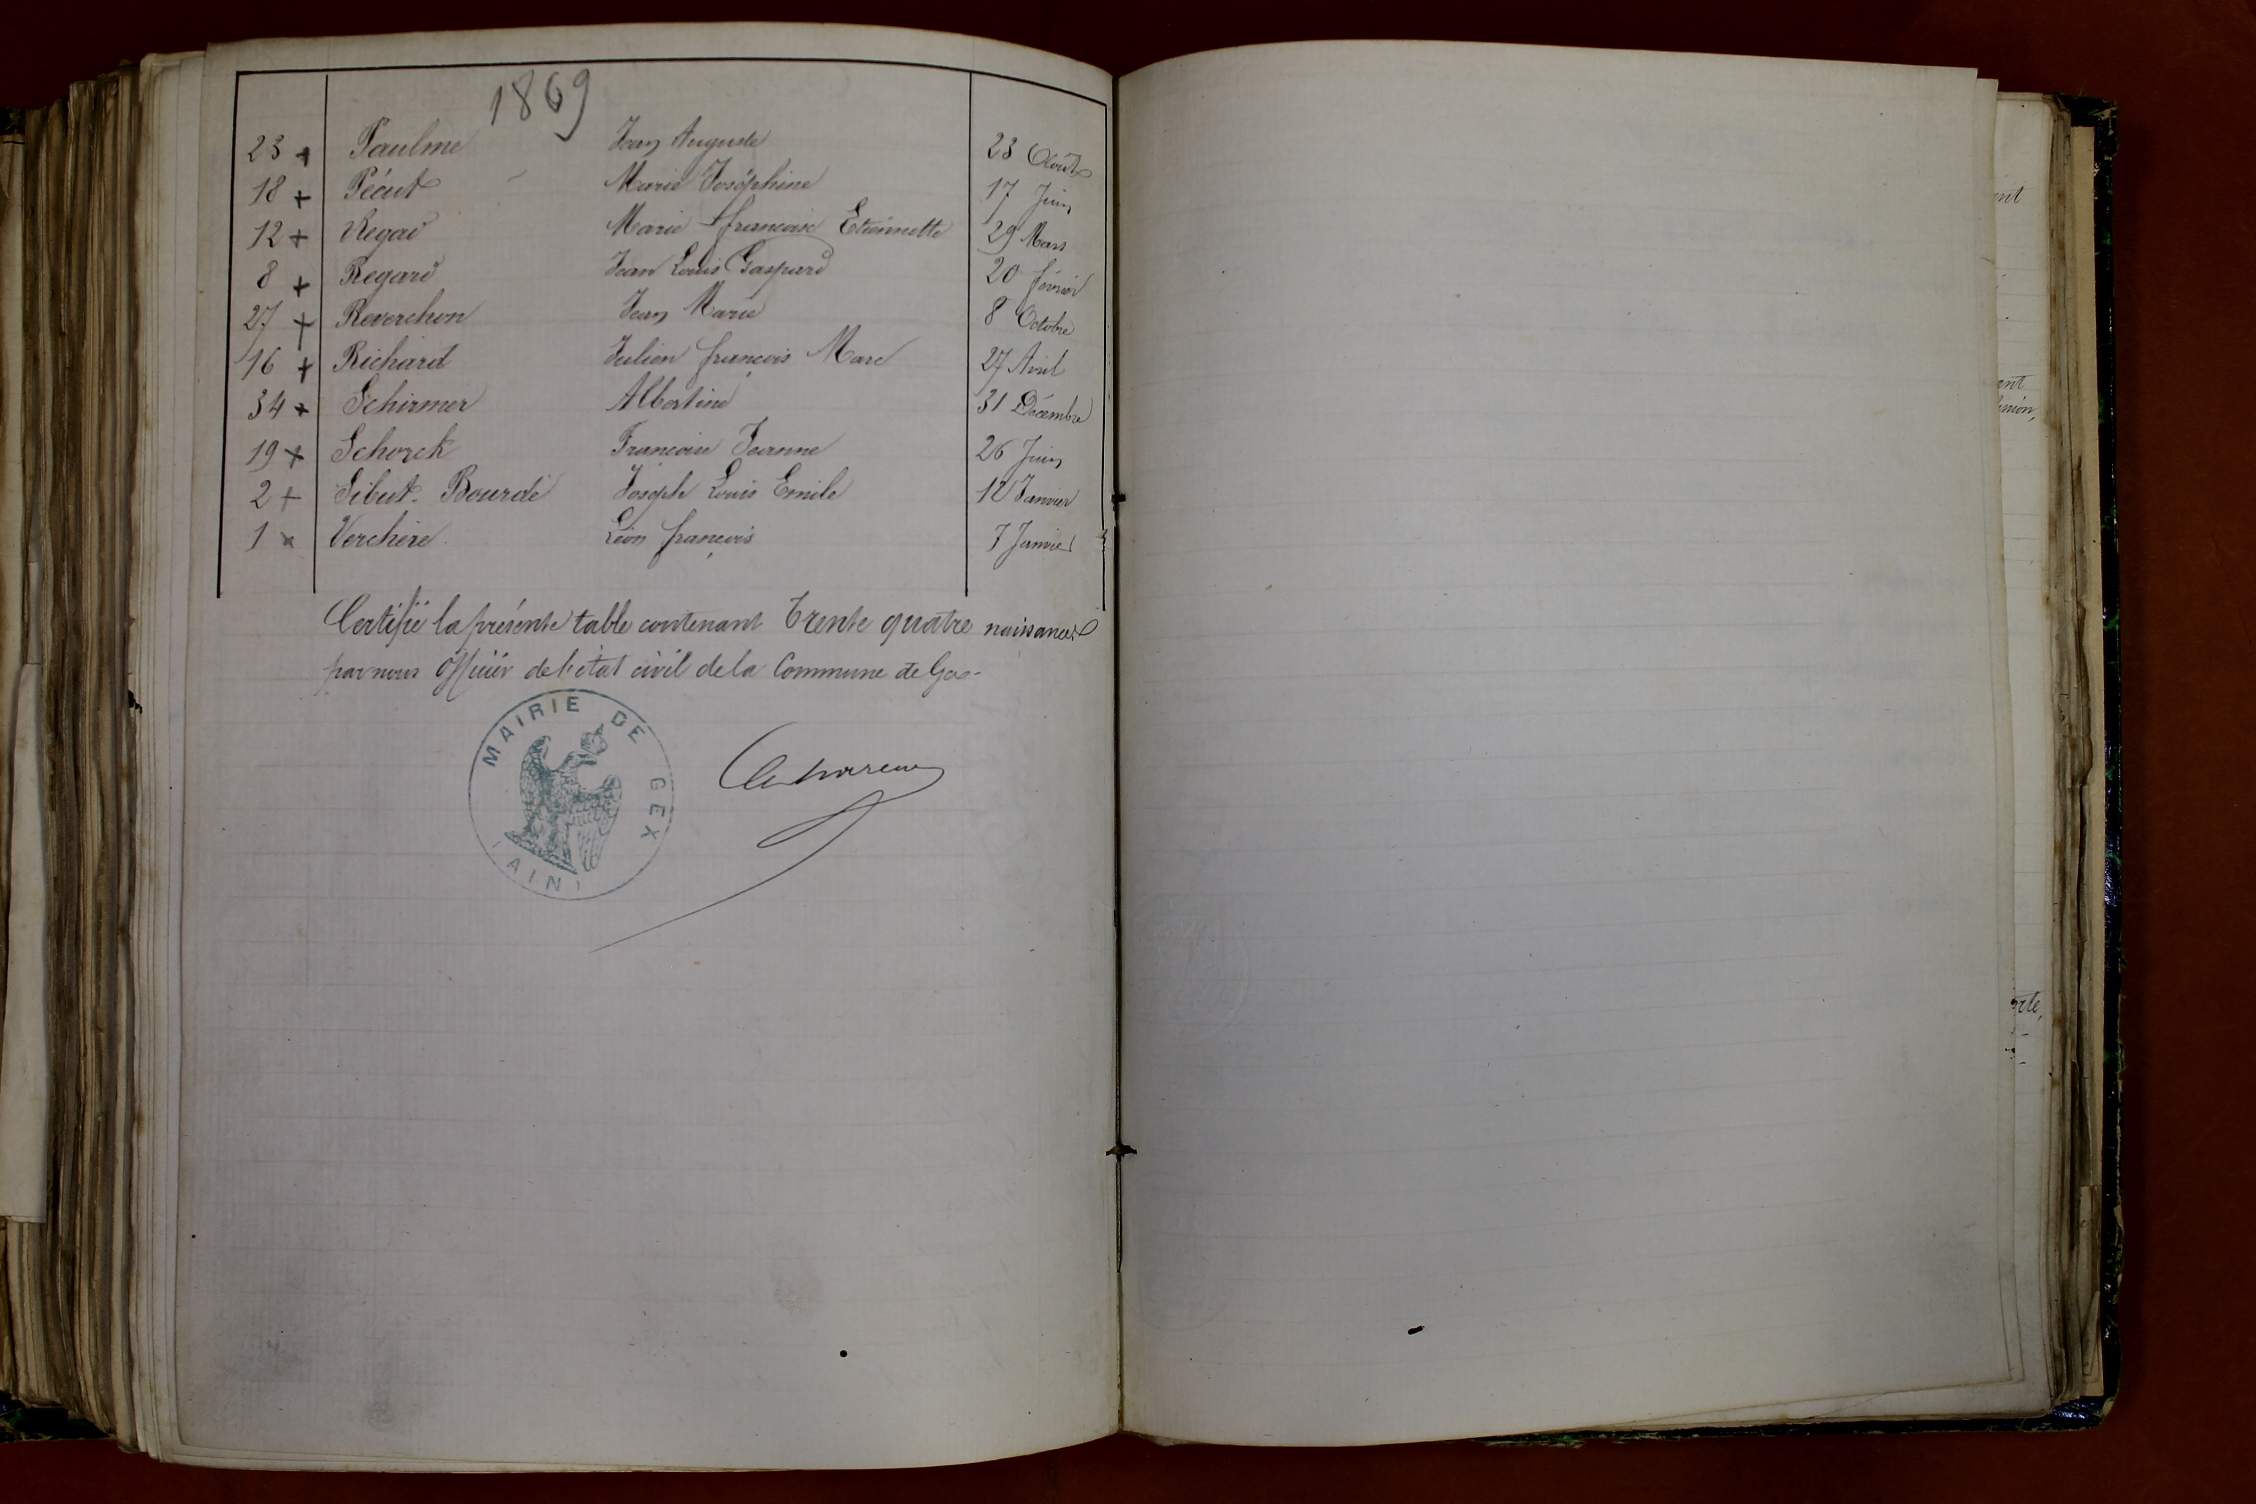 1869
23 + Paulme Jean Auguste 23 Août
18 + Pécut Marie Joséphine 17 Juin
12 + Regad Marie françoise Etiennette 29 Mars
8 + Regard Jean Louis Gaspard 20 février
27 + Reverchon Jean Marie 8 Octobre
16 + Richard Julien françois Marc 27 Avril
34 + Schirmer Albertine 31 Décembre
19 + Schorck Françoise Jeanne 26 Juin
2 + Sibut-Bourdé Joseph Louis Emile 12 Janvier
1 x Verchère Léon françois 7 Janvier
Certifié la présente table contenant Trente quatre naissances
par nous Officier de l'état civil de la Commune de Gex-
MAIRIE DE GEX
(AIN)